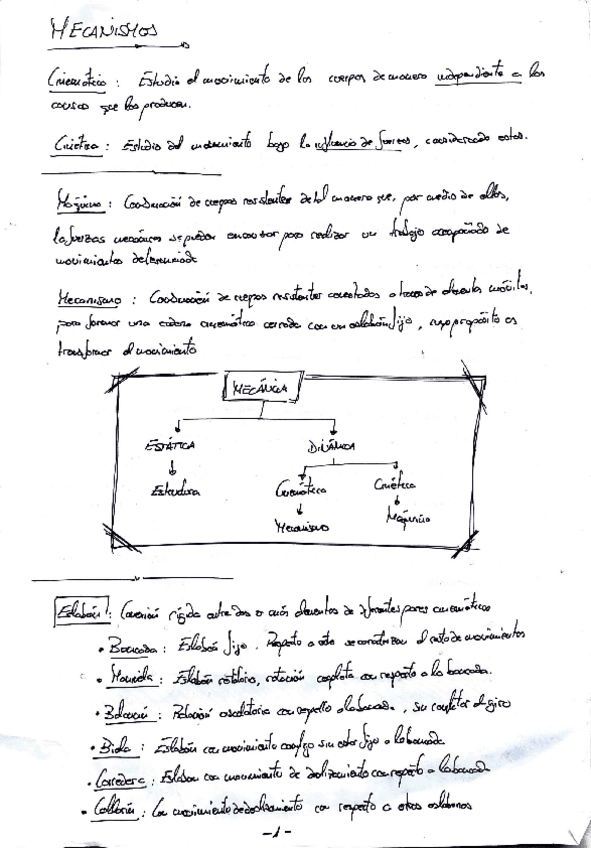 MECANISMOS
Cinemática : Estudia el movimiento de los cuerpos de manera independiente a las
causas que las producen.
Cinética : Estudio del movimiento bajo la influencia de fuerzas, considerando estas.
Máquina : Combinación de cuerpos resistentes de tal manera que, por medio de ellos,
las fuerzas mecánicas se puedan encauzar para realizar un trabajo acompañado de
movimientos determinados
Mecanismo : Combinación de cuerpos resistentes conectados a través de elementos móviles,
para formar una cadena cinemática cerrada con un eslabón fijo, cuyo propósito es
transformar el movimiento
MECÁNICA
ESTÁTICA DINÁMICA
Estructura Cinemática Cinética
Mecanismo Máquina
Eslabón : Conexión rígida entre dos o más elementos de diferentes pares cinemáticos
• Bancada : Eslabón fijo. Respecto a este se caracterizan el resto de movimientos
• Manivela : Eslabón rotatorio, rotación completa con respecto a la bancada.
• Balancín : Rotación oscilatoria con respecto a la bancada, sin completar el giro
• Biela : Eslabón con movimiento complejo sin estar fijo a la bancada
• Corredera : Eslabón con movimiento de deslizamiento con respecto a la bancada
• : Con movimiento de deslizamiento con respecto a otros eslabones
-1-